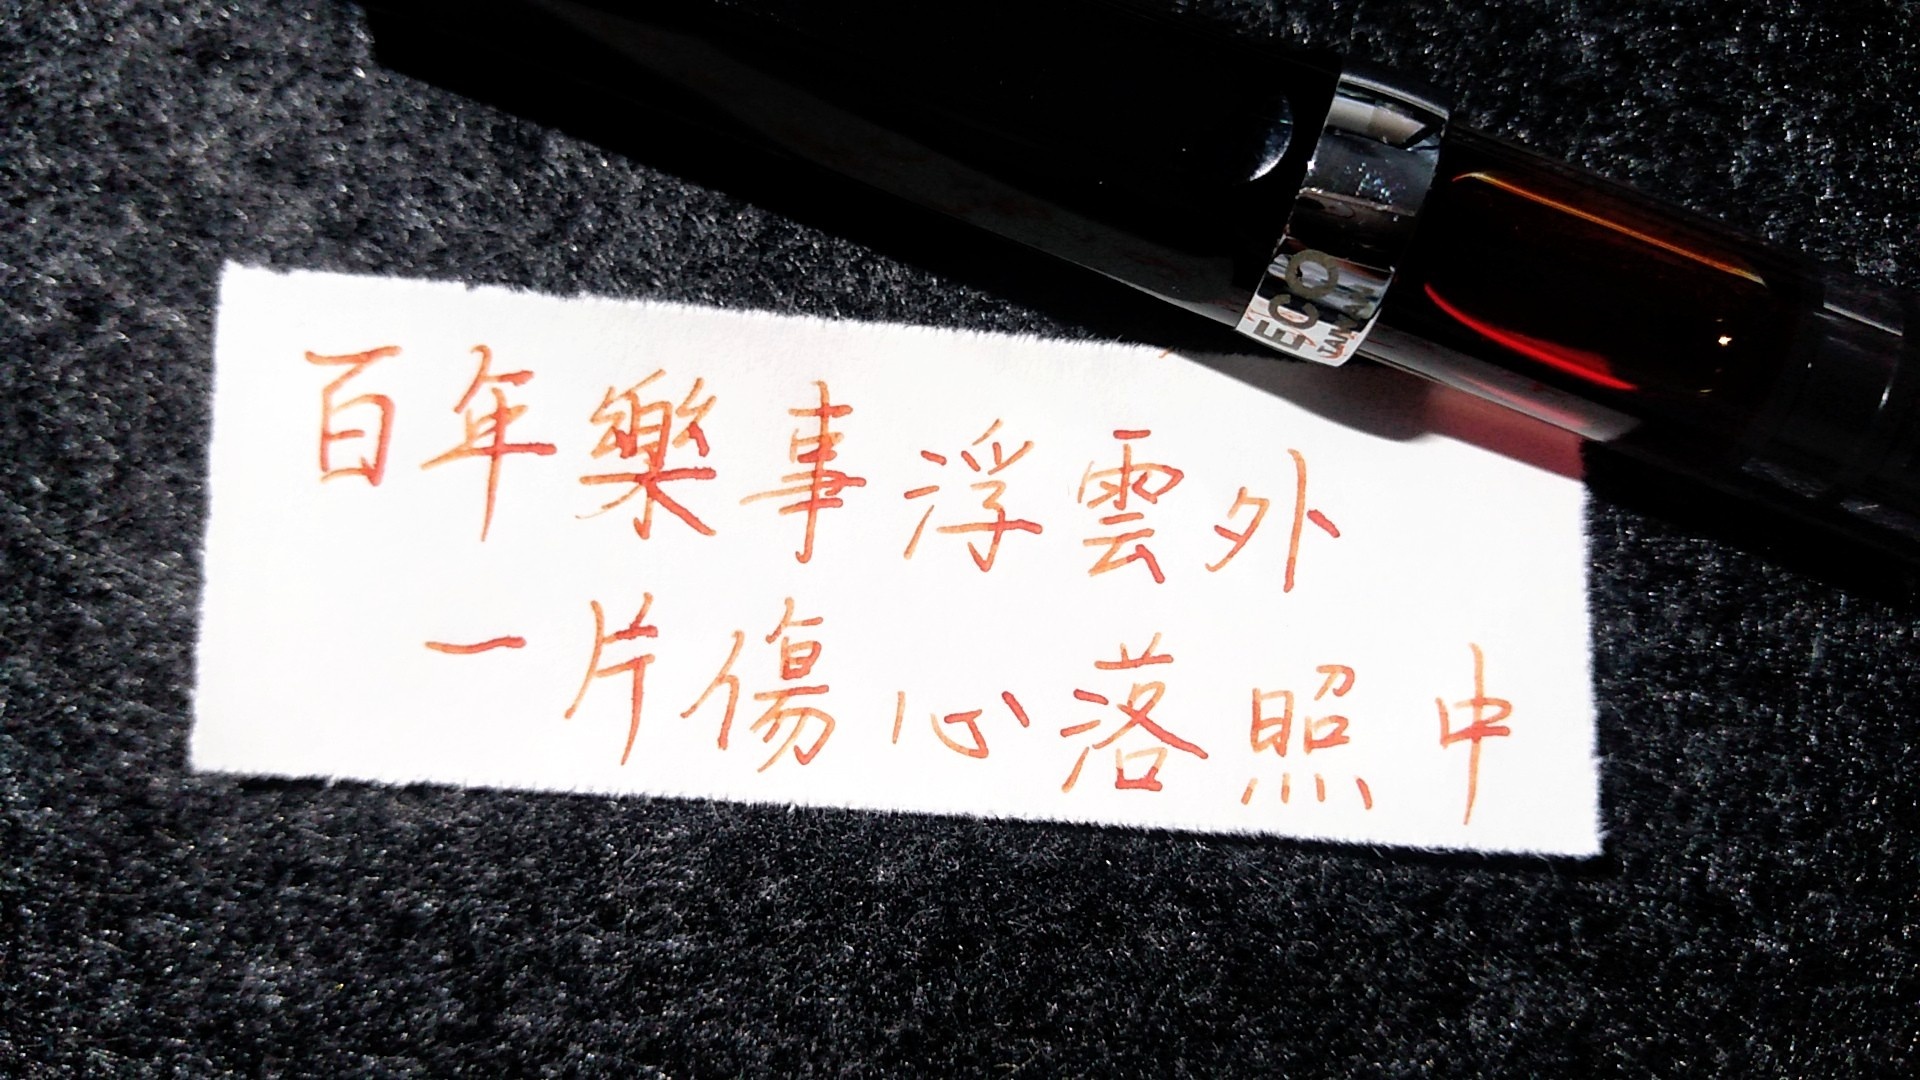 ECO
百年樂事浮雲外
一片傷心落照中